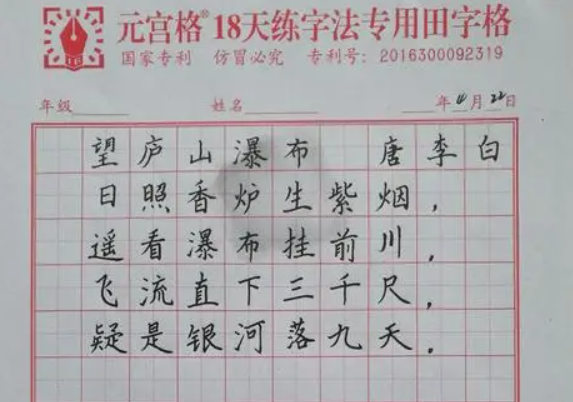 元宫格®18天练字法专用田字格
国家专利 仿冒必究 专利号：2016300092319
年级 姓名 年4月22日
望庐山瀑布 唐李白
日照香炉生紫烟，
遥看瀑布挂前川，
飞流直下三千尺，
疑是银河落九天．